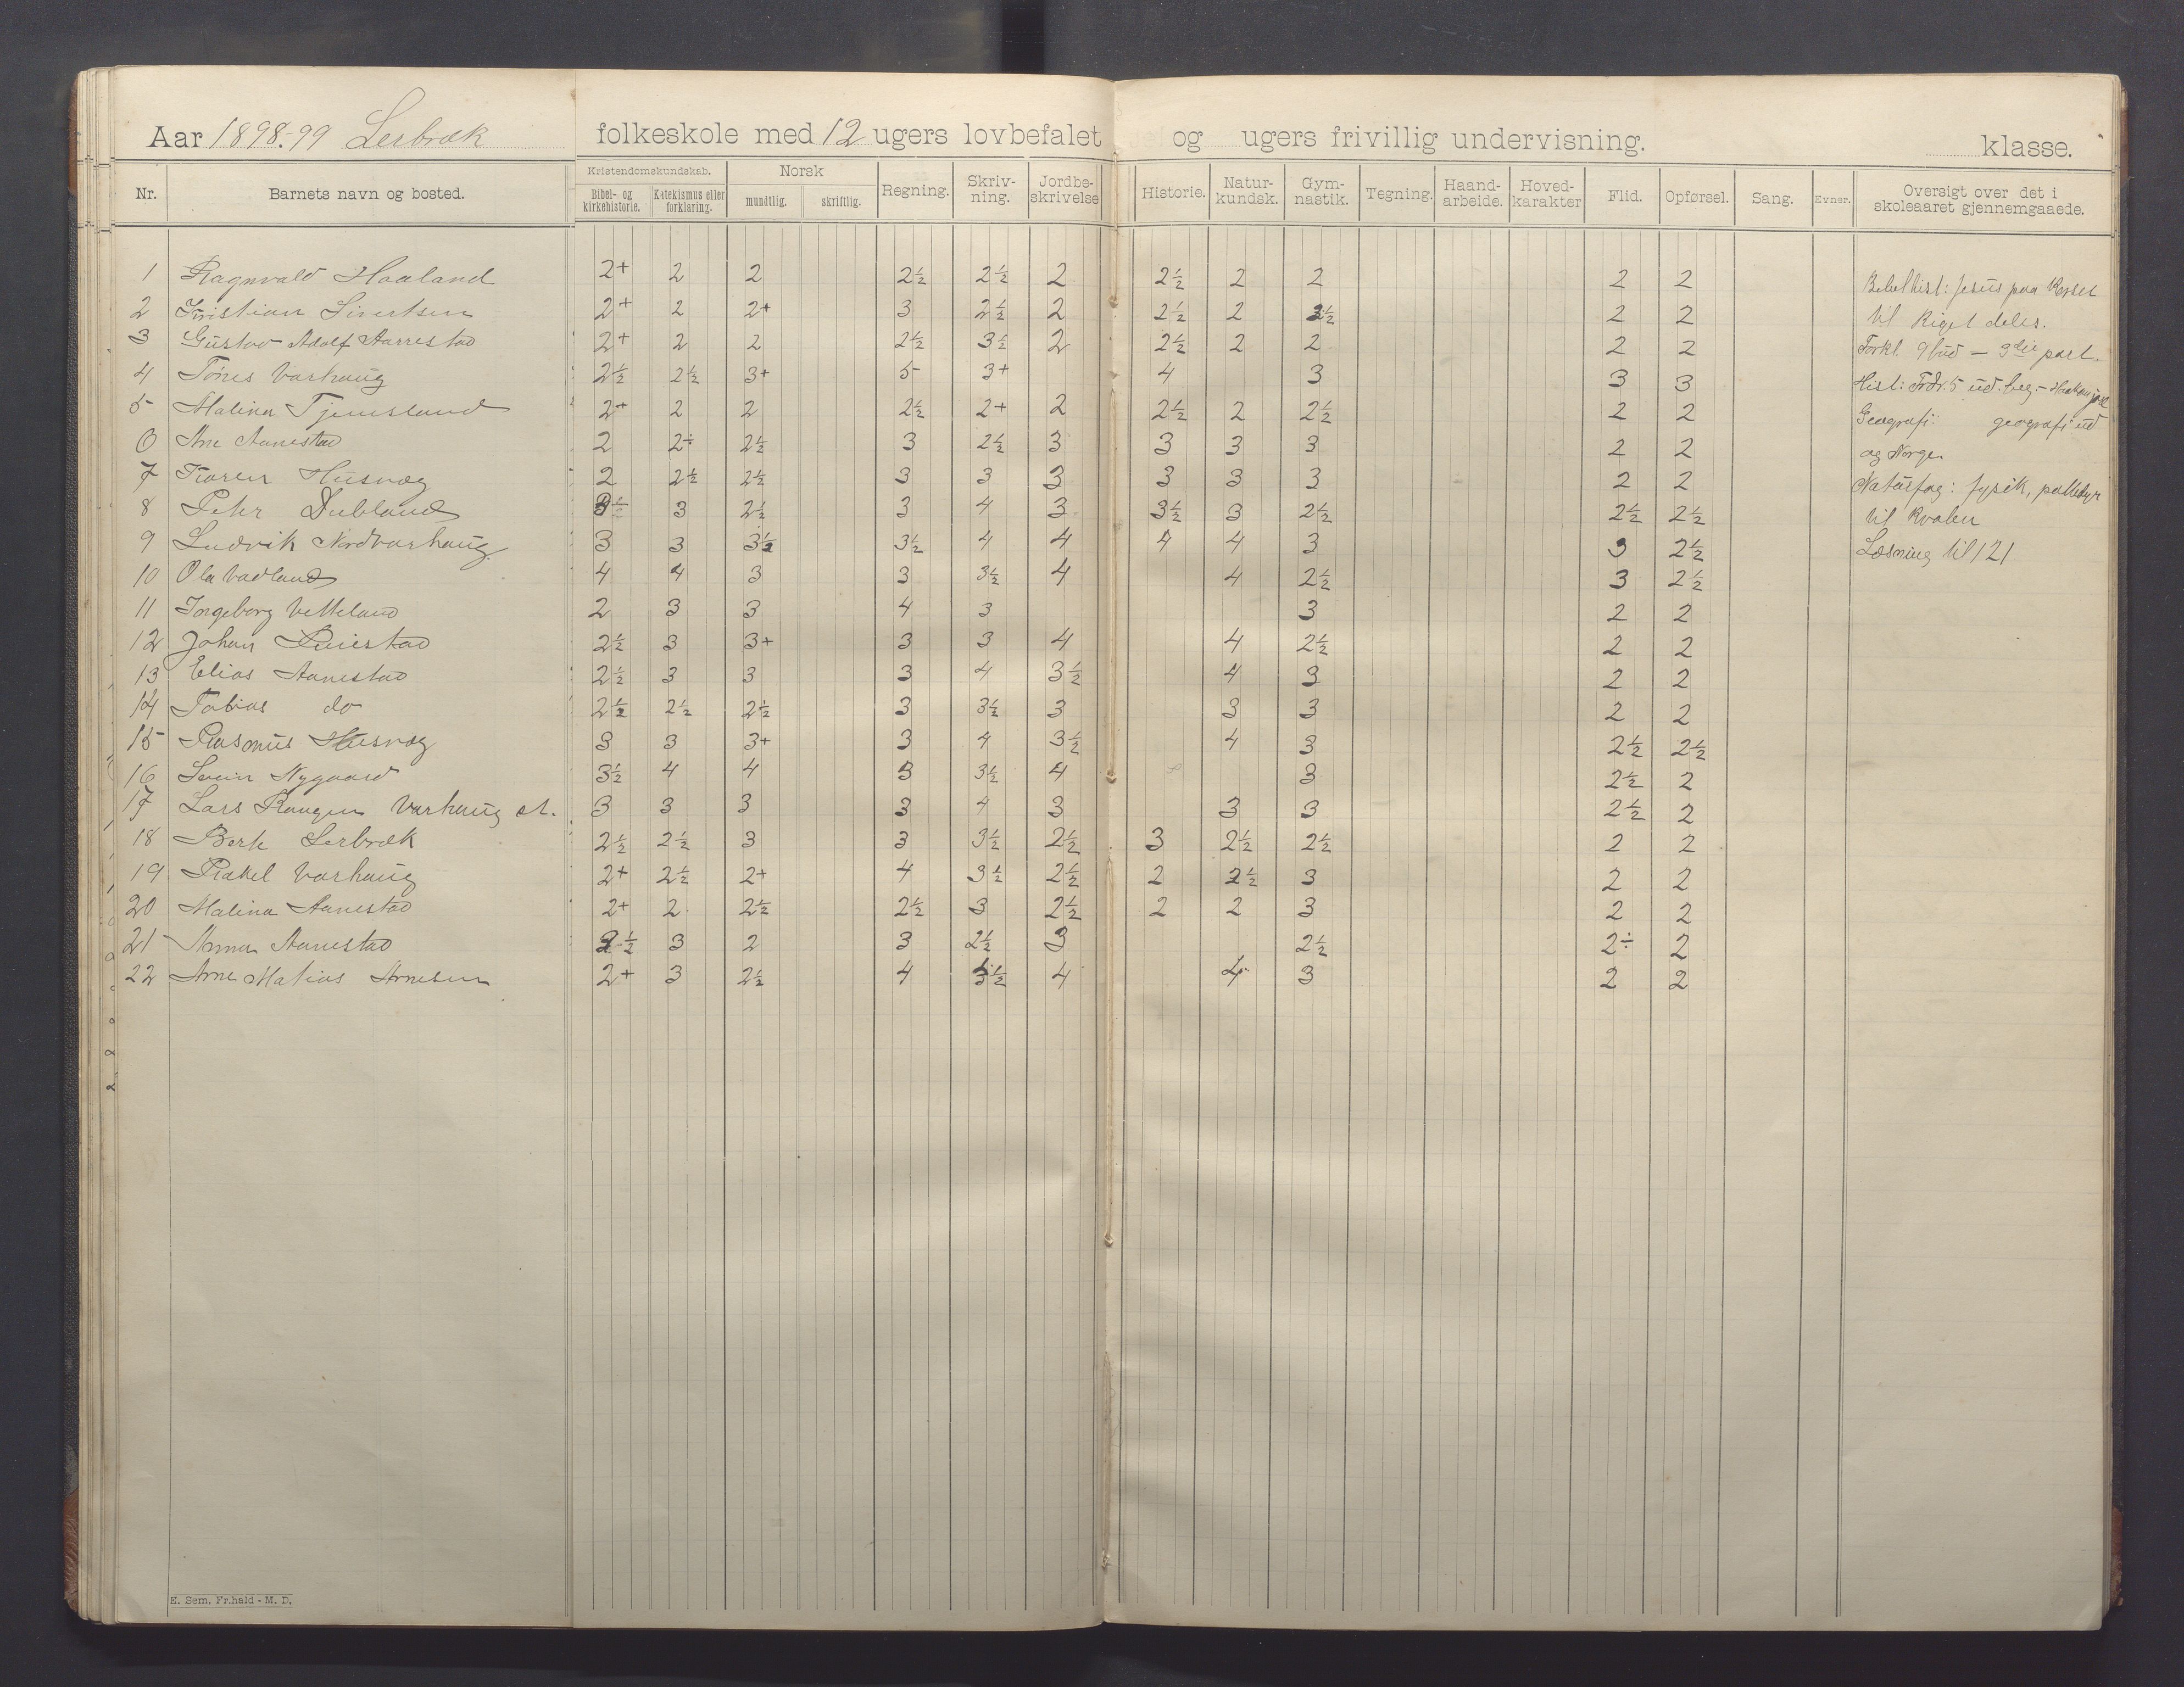 Aar 1898.-99 Lerbræk folkeskole med 12 ugers lovbefalet og ugers frivillig undervisning. klasse.
Nr. Barnets navn og bosted. Kristendomskundskab. Bibel- og kirkehistorie. Katekismus eller forklaring. Norsk mundtlig. skriftlig. Regning. Skriv-ning. Jordbe-skrivelse Historie. Natur-kundsk. Gym-nastik. Tegning. Haand-arbeide. Hoved-karakter Flid. Opførsel. Sang. Evner. Oversigt over det i skoleaaret gjennemgaaede.
1 Ragnvald Haaland 2+ 2 2 2½ 2½ 2 2½ 2 2 2 2 Bibelhist: Jesus paa Korset
2 Kristian Sivertsen 2+ 2 2+ 3 2½ 2 2½ 2 2½ 2 2 til Riget deles.
3 Gustav Adolf Aarrestad 2+ 2 2 2½ 3½ 2 2½ 2 2 2 2 Forkl. 9 bud — 3die part.
4 Tönes Varhaug 2½ 2½ 3+ 5 3+ 4 3 3 3 Hist: ud. beg. - Haakon jarl
5 Malina Tjemsland 2+ 2 2 2½ 2+ 2 2½ 2 2½ 2 2 Geografi: geografi ud
6 Ane Aanestad 2 2÷ 2½ 3 2½ 3 3 3 3 2 2 og Norge.
7 Karen Husvæg 2 2½ 2½ 3 3 3 3 3 3 2 2 Naturfag: fysik, pattedyr
8 Peter Dubland 3½ 3 2½ 3 4 3 3½ 3 2½ 2½ 2½ til Hvalen
9 Ludvik Nordvarhaug 3 3 3½ 3½ 4 4 4 4 3 3 2½ Læsning til 121
10 Ola Vadland 4 4 3 3 3½ 4 4 2½ 3 2½
11 Ingeborg Vetteland 2 3 3 4 3 3 2 2
12 Johan 2½ 3 3+ 3 3 4 4 2½ 2 2
13 Elias Aanestad 2½ 3 3 3 4 3½ 4 3 2 2
14 Tobias do 2½ 2½ 2½ 3 3½ 3 3 3 2 2
15 Rasmus Husvæg 3 3 3+ 3 4 3½ 4 3 2½ 2½
16 Nygaard 3½ 4 4 3 3½ 4 3 2½ 2
17 Lars Varhaug st. 3 3 3 3 4 3 3 3 2½ 2
18 Berte Lerbræk 2½ 2½ 3 3 3½ 2½ 3 2½ 2½ 2 2
19 Rakel Varhaug 2+ 2½ 2+ 4 3½ 2½ 2 2½ 3 2 2
20 Malina Aanestad 2+ 2 2½ 2½ 3 2½ 2 2 3 2 2
21 Anna Aanestad 2½ 3 2 3 2½ 3 2½ 2÷ 2
22 Arne Matias Arnesen 2+ 3 2½ 4 3½ 4 4 3 2 2
E. Sem, Fr.hald - M. D.